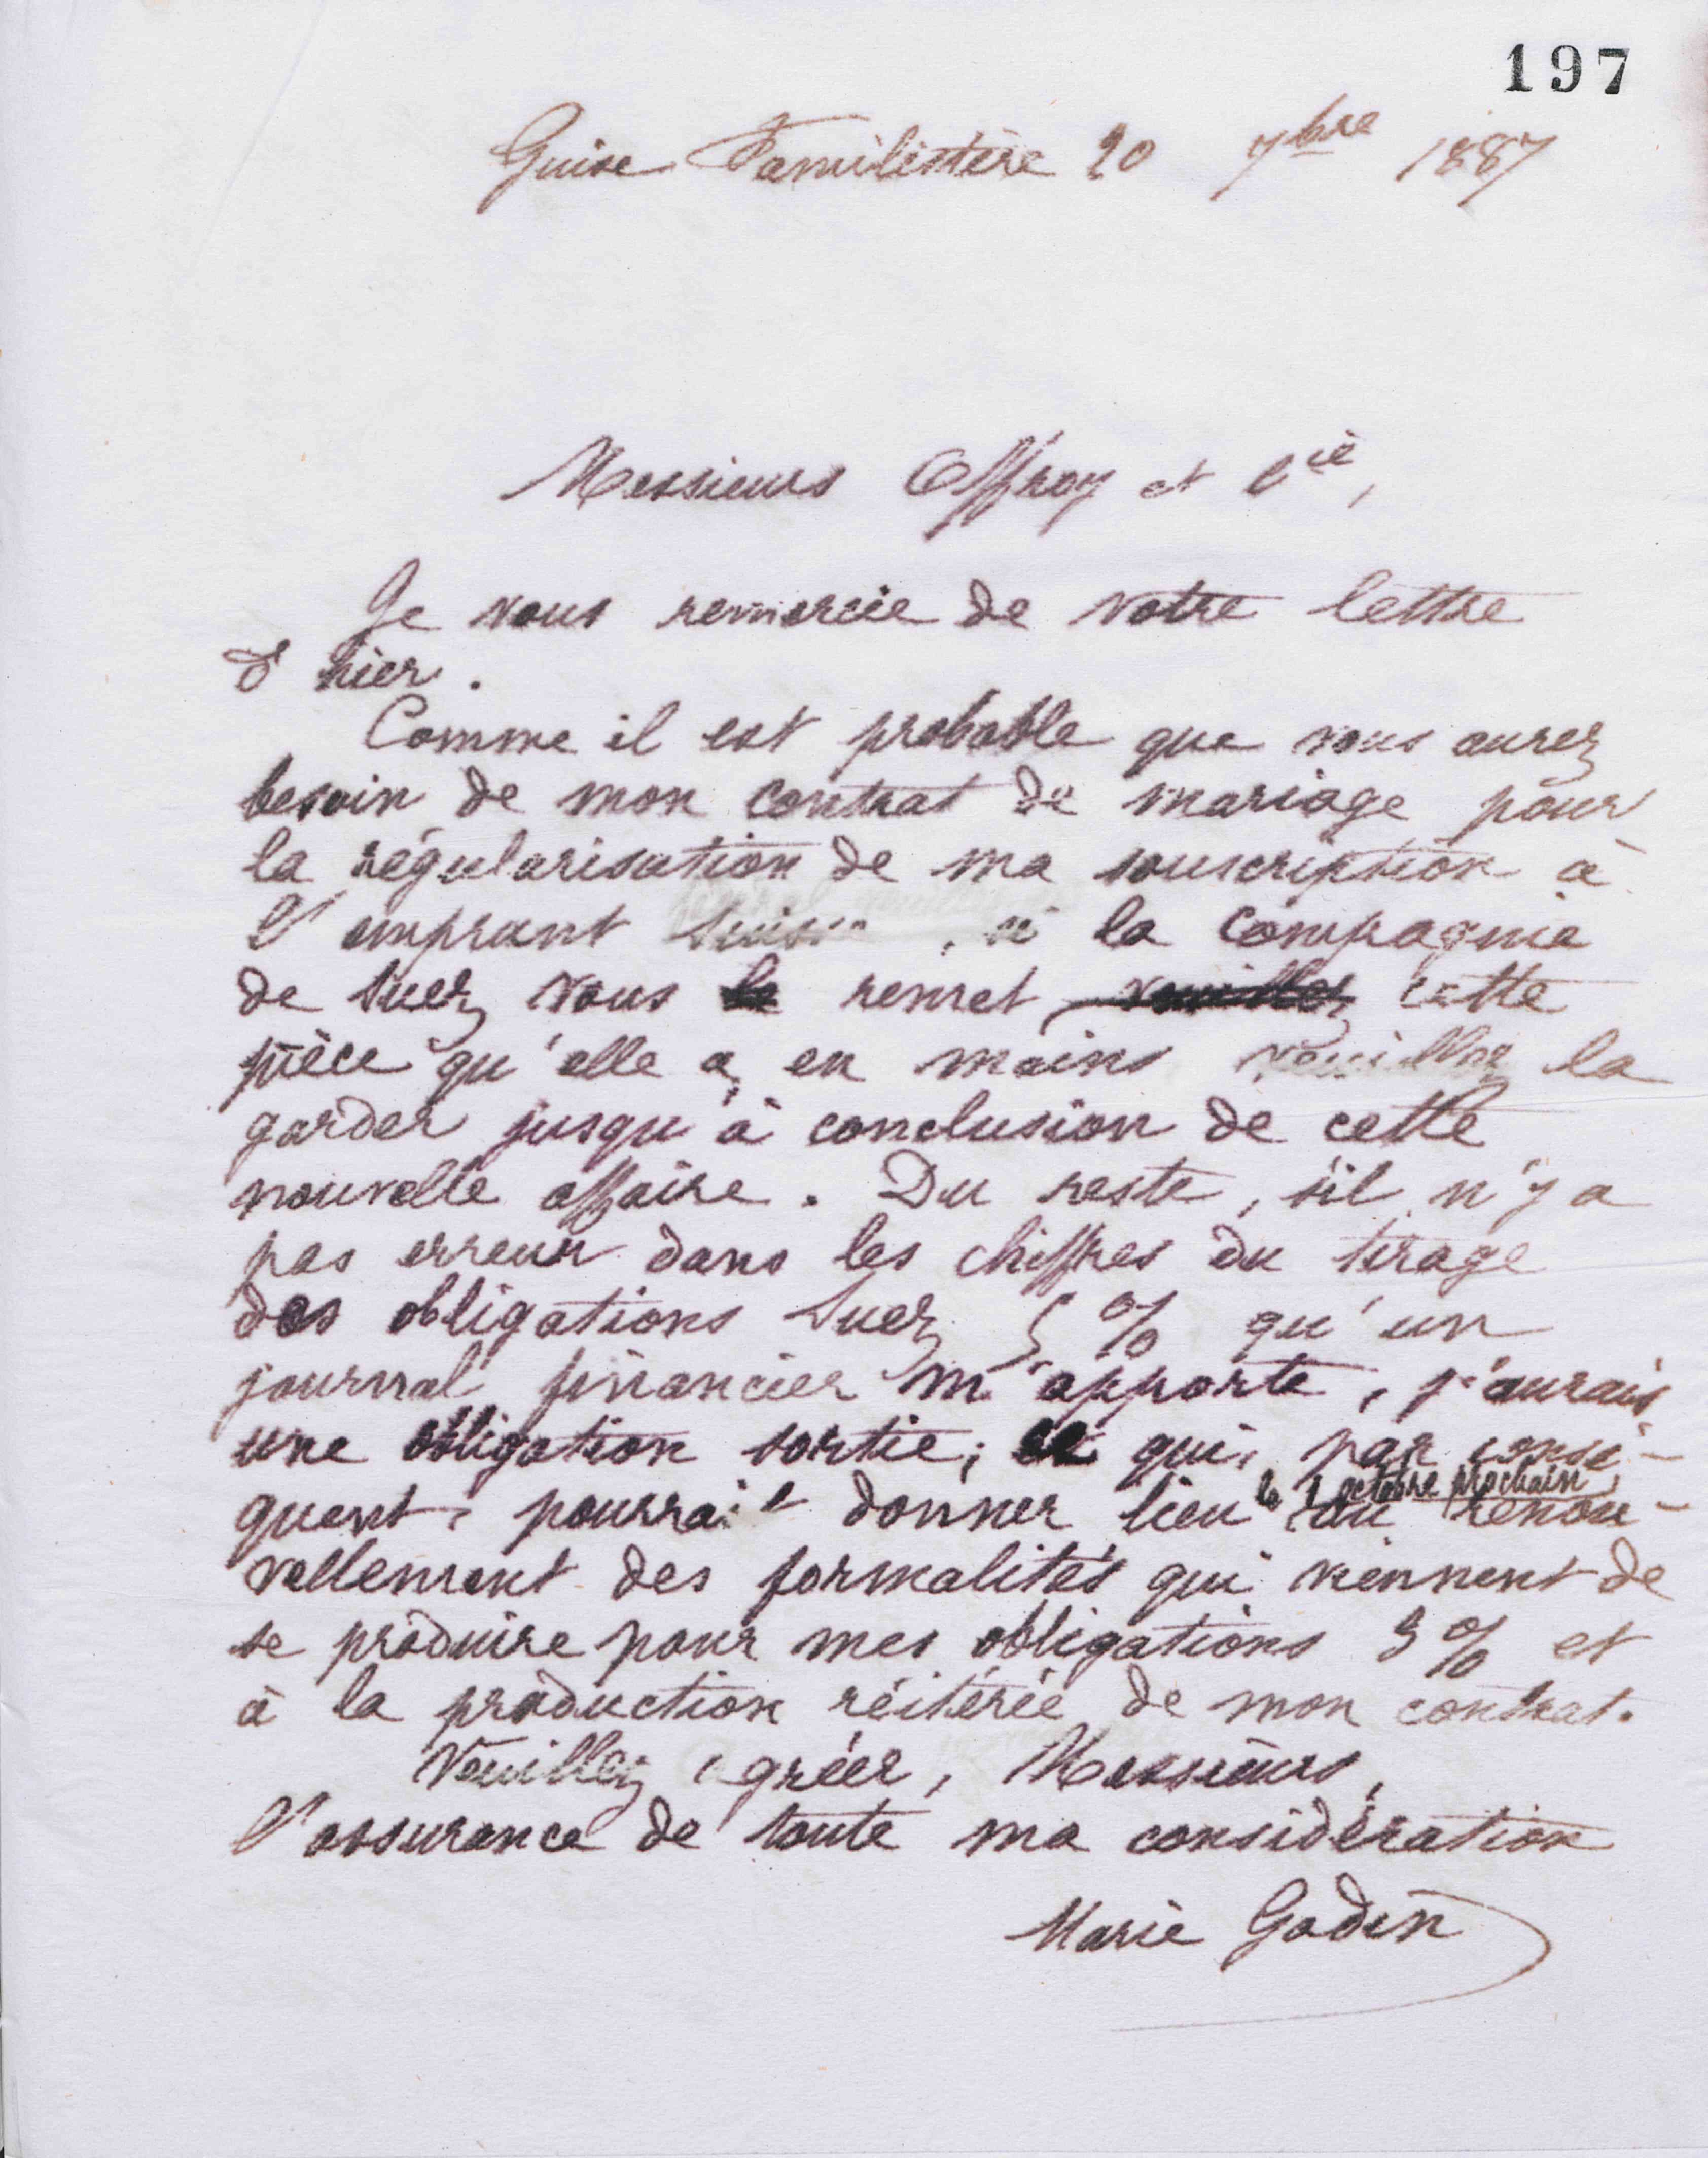 197
Guise Familistère 20 7bre 1887
Messieurs Offroy et Cie,
Je vous remercie de votre lettre
d'hier.
Comme il est probable que vous aurez
besoin de mon contrat de mariage pour
la régularisation de ma souscription à
l'emprunt , si la Compagnie
de Suez vous le remet veuillez cette
pièce qu'elle a en mains veuillez la
garder jusqu'à conclusion de cette
nouvelle affaire. Du reste, s'il n'y a
pas erreur dans les chiffres du tirage
des obligations Suez 5 % qu'un
journal financier m'apporte, j'aurais
une obligation sortie; ce qui, par consé-
quent, pourrait donner lieu le 1 octobre prochain, au renou-
vellement des formalités qui viennent de
se produire pour mes obligations 3 % et
à la production réitérée de mon contrat.
Veuillez agréer, Messieurs,
l'assurance de toute ma considération
Marie Godin